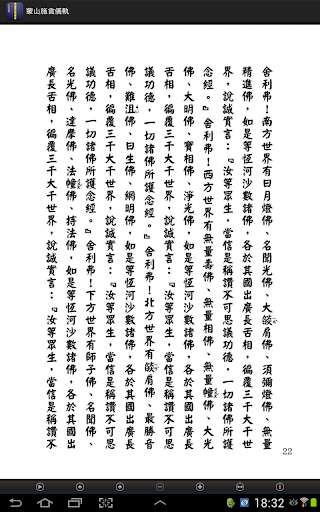 蒙山施食儀軌
舍利弗！南方世界有日月燈佛、名聞光佛、大燄肩佛、須彌燈佛、無量
精進佛，如是等恆河沙數諸佛，各於其國出廣長舌相，徧覆三千大千世
界，說誠實言：『汝等眾生，當信是稱讚不可思議功德，一切諸佛所護
念經。』舍利弗！西方世界有無量壽佛、無量相佛、無量幢佛、大光
佛、大明佛、寶相佛、淨光佛，如是等恆河沙數諸佛，各於其國出廣長
舌相，徧覆三千大千世界，說誠實言：『汝等眾生，當信是稱讚不可思
議功德，一切諸佛所護念經。』舍利弗！北方世界有燄肩佛、最勝音
佛、難沮佛、日生佛、網明佛，如是等恆河沙數諸佛，各於其國出廣長
舌相，徧覆三千大千世界，說誠實言：『汝等眾生，當信是稱讚不可思
議功德，一切諸佛所護念經。』舍利弗！下方世界有師子佛、名聞佛、
名光佛、達摩佛、法幢佛、持法佛，如是等恆河沙數諸佛，各於其國出
廣長舌相，徧覆三千大千世界，說誠實言：『汝等眾生，當信是稱讚不可
22
18:32